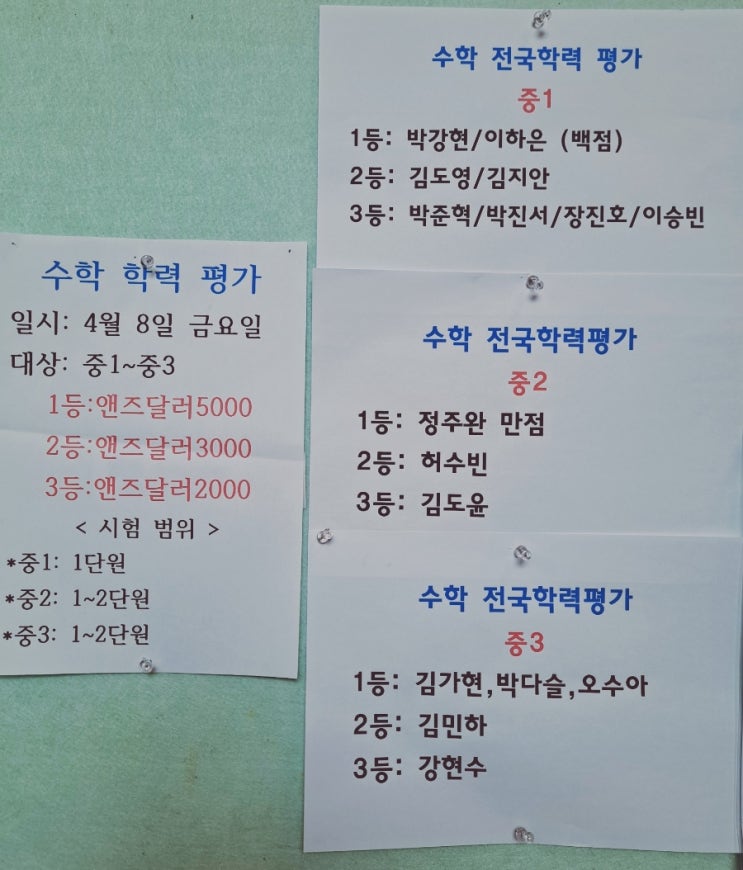 수학 학력 평가
일시: 4월 8일 금요일
대상: 중1~중3
1등:앤즈달러5000
2등:앤즈달러3000
3등:앤즈달러2000
< 시험 범위 >
*중1: 1단원
*중2: 1~2단원
*중3: 1~2단원
수학 전국학력 평가
중1
1등: 박강현/이하은 (백점)
2등: 김도영/김지안
3등: 박준혁/박진서/장진호/이승빈
수학 전국학력평가
중2
1등: 정주완 만점
2등: 허수빈
3등: 김도윤
수학 전국학력평가
중3
1등: 김가현,박다슬,오수아
2등: 김민하
3등: 강현수